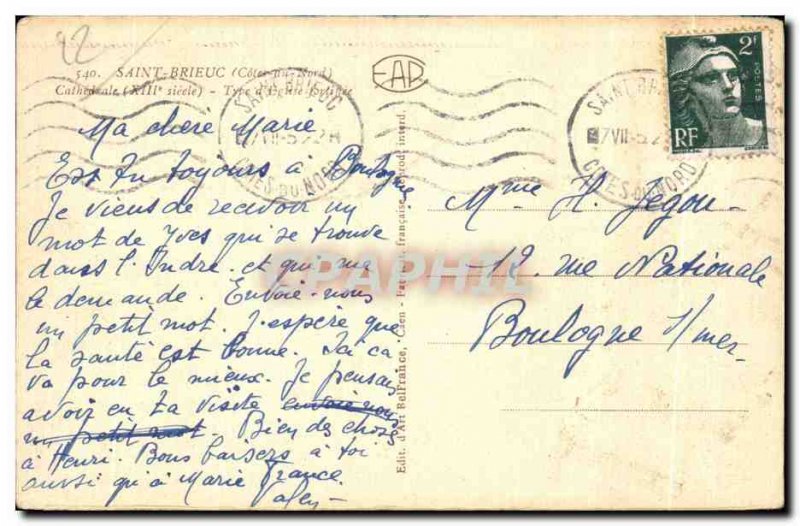 22
540. SAINT-BRIEUC (Côtes-du-Nord)
Cathédrale (XIIIe siècle) - Type d'Église fortifiée
EAR
Ma chere Marie
Est tu toujours à Boulogne
Je viens de recevoir un
mot de Yves qui se trouve
dans l'Indre et qui me
le demande. Envoie-nous
un petit mot. J'espère que
la santé est bonne. Ici ca
va pour le mieux. Je pensais
avoir eu ta visite envoie nous
un petit mot. Bien des choses
à Henri. Bons baisers à toi
aussi qu'à Marie France.
Edit. d'Art BelFrance, Caen - française
interd.
CPAPHIL
SAINT-BRIEUC
7 VII-52
CÔTES-DU-NORD
SAINT-BR
7 VII-52
CÔTES-DU-NORD
2F
POSTES
RF
Mme H. Jégou
12 rue Nationale
Boulogne s/mer